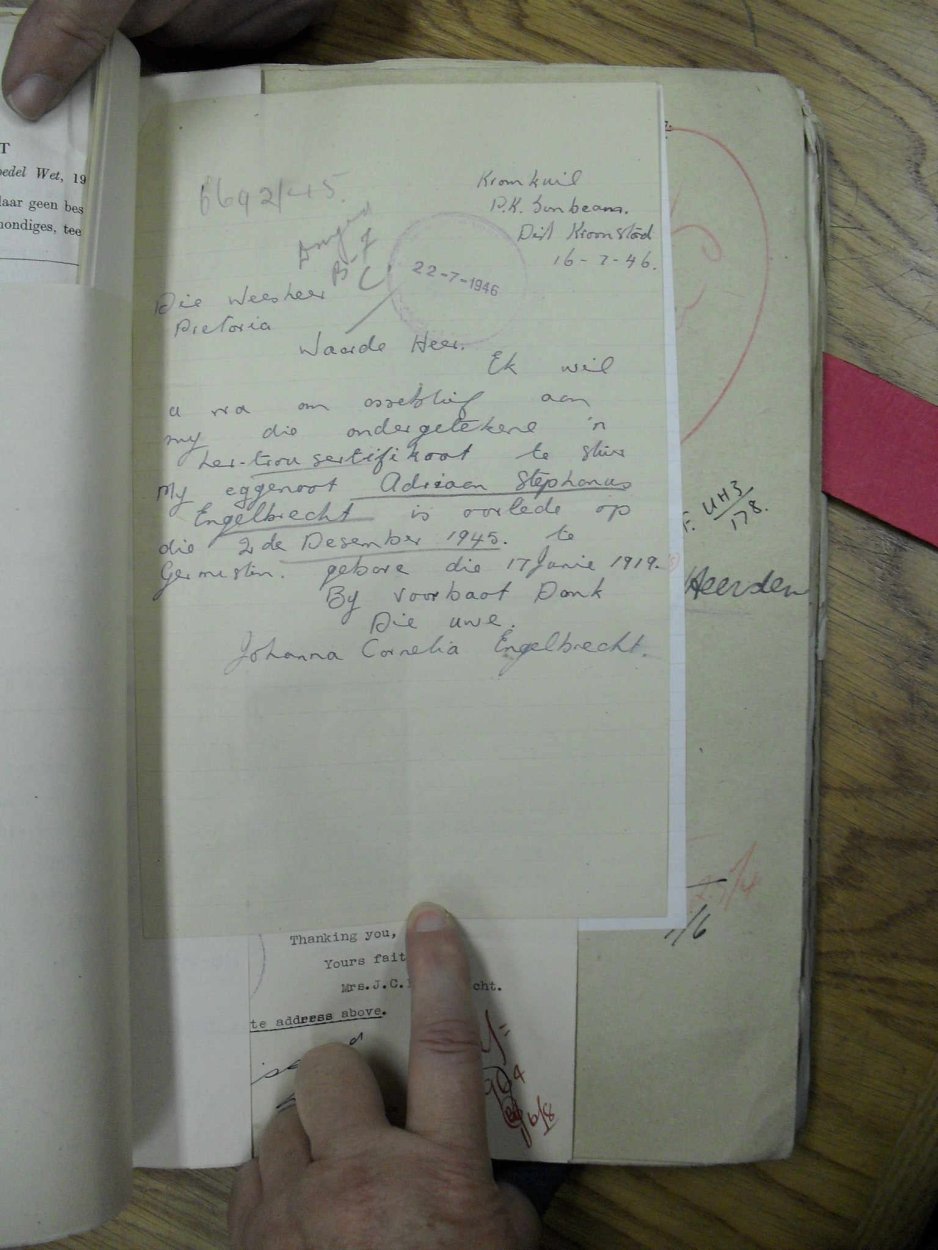 T
edel Wet, 19
laar geen bes
mondiges, tee
6692/45.
Kromkuil
P.K. Sunbeam.
Dist Kroonstad
16-7-46.
22-7-1946
Die Weesheer
Pretoria
Waarde Heer.
Ek wil
u vra om asseblief aan
my die ondergetekene 'n
her-trou sertifikaat te stuur
My eggenoot Adriaan Stephanus
Engelbrecht is oorlede op
die 2de Desember 1945. te
Germiston. gebore die 17 Junie 1919.
By voorbaat Dank
Die uwe.
Johanna Cornelia Engelbrecht.
UH3
178.
Heerden
1/6
Thanking you,
Yours fait
Mrs.J.C. cht.
te address above.
6/8